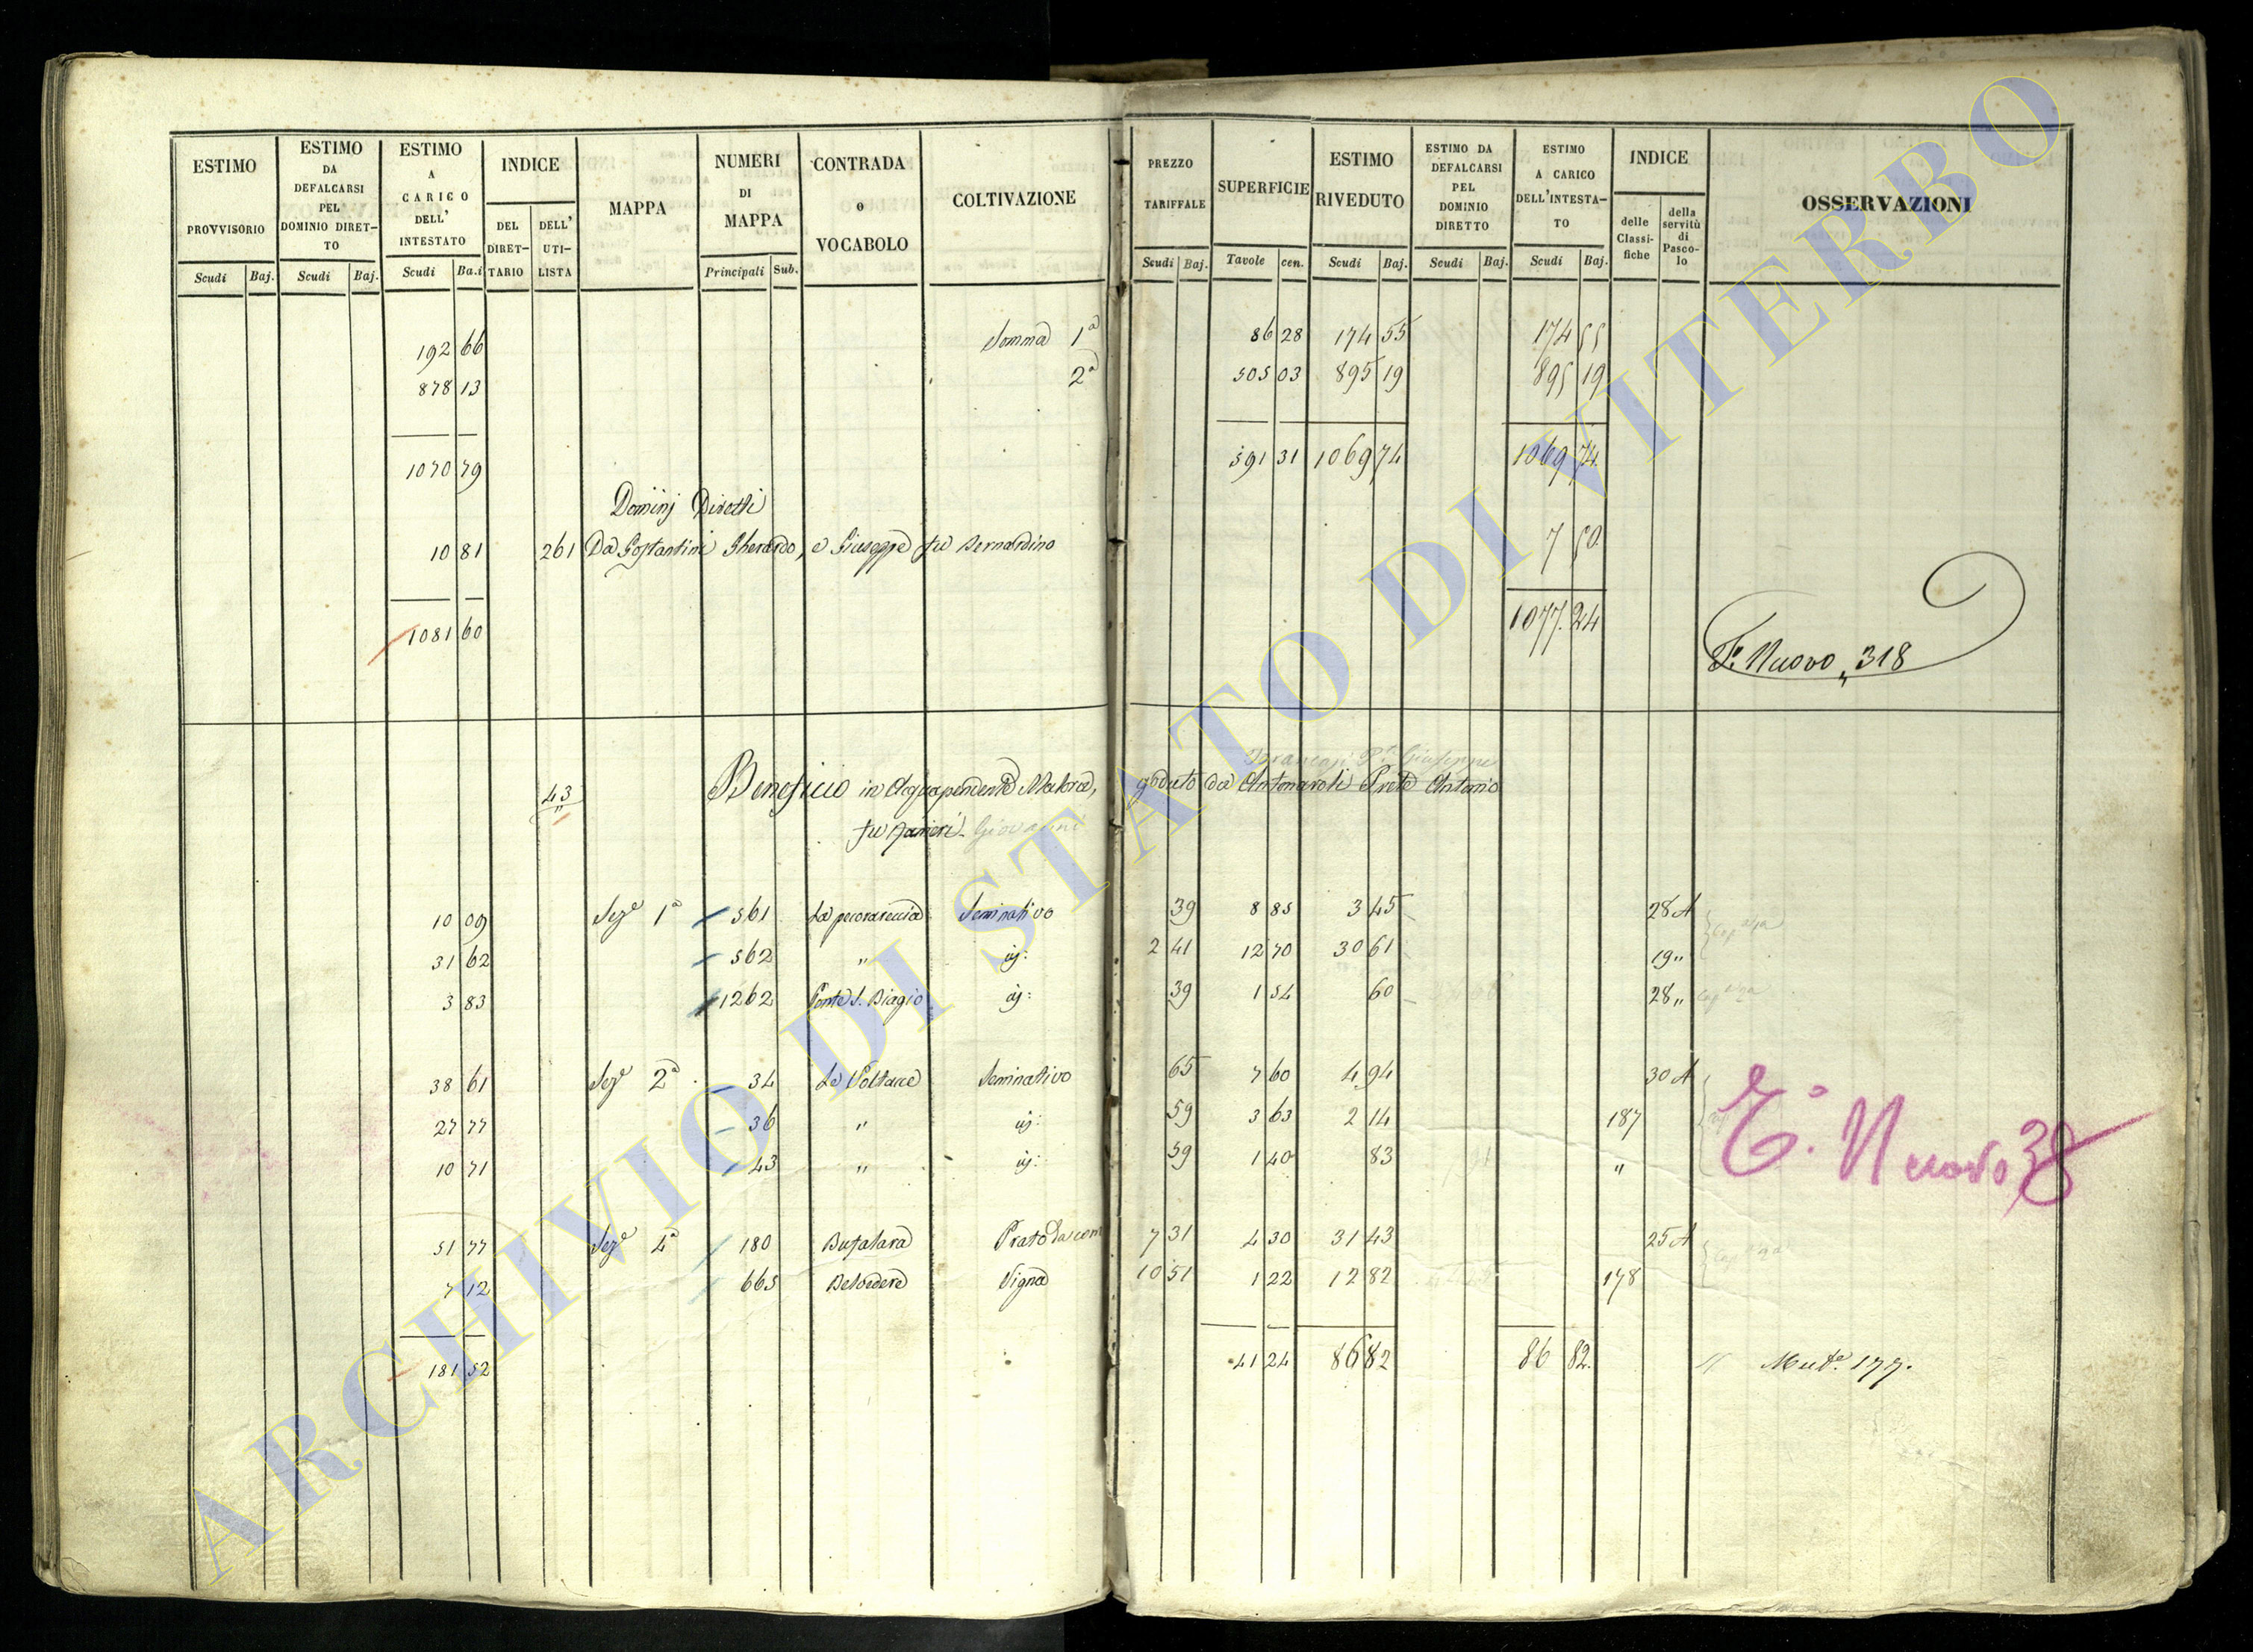 ESTIMO PROVVISORIO Scudi Baj.
ESTIMO DA DEFALCARSI PEL DOMINIO DIRET-TO Scudi Baj.
ESTIMO A CARICO DELL' INTESTATO Scudi Ba.i
INDICE DEL DIRET-TARIO DELL' UTI-LISTA
MAPPA
NUMERI DI MAPPA Principali Sub.
CONTRADA o VOCABOLO
COLTIVAZIONE
PREZZO TARIFFALE Scudi Baj.
SUPERFICIE Tavole cen.
ESTIMO RIVEDUTO Scudi Baj.
ESTIMO DA DEFALCARSI PEL DOMINIO DIRETTO Scudi Baj.
ESTIMO A CARICO DELL'INTESTA-TO Scudi Baj.
INDICE delle Classi-fiche della servitù di Pasco-lo
OSSERVAZIONI
192 66 Somma 1ª 86 28 174 55 174 55
878 13 2ª 505 03 895 19 895 19
1070 79 591 31 1069 74 1069 74
Dominj Diretti
10 81 261 Da Costantini Gherardo, e Giuseppe fu Bernardino 7 50
1081 60 1077 24
T. Nuovo 318
43 Beneficio in Acquapendente goduto da Antonaroli Prete Antonio
fu Giovanni
10 09 Seze 1ª 561 La pecorareccia Seminativo 39 8 85 3 45 28 A
31 62 562 " id: 2 41 12 70 30 61 19 "
3 83 1262 Ponte S. Biagio id: 39 1 54 60 28 "
38 61 Seze 2ª 34 Le Voltacce Seminativo 65 7 60 4 94 30 A
27 77 36 " id: 59 3 63 2 14 187
10 71 43 " id: 59 1 40 83 "
T.° Nuovo 38
51 77 Seze 4ª 180 Bufalara Prato 7 31 4 30 31 43 25 A
7 12 665 Belvedere Vigna 10 51 1 22 12 82 178
181 52 41 24 86 82 86 82 Mut.e 177.
ARCHIVIO DI STATO DI VITERBO